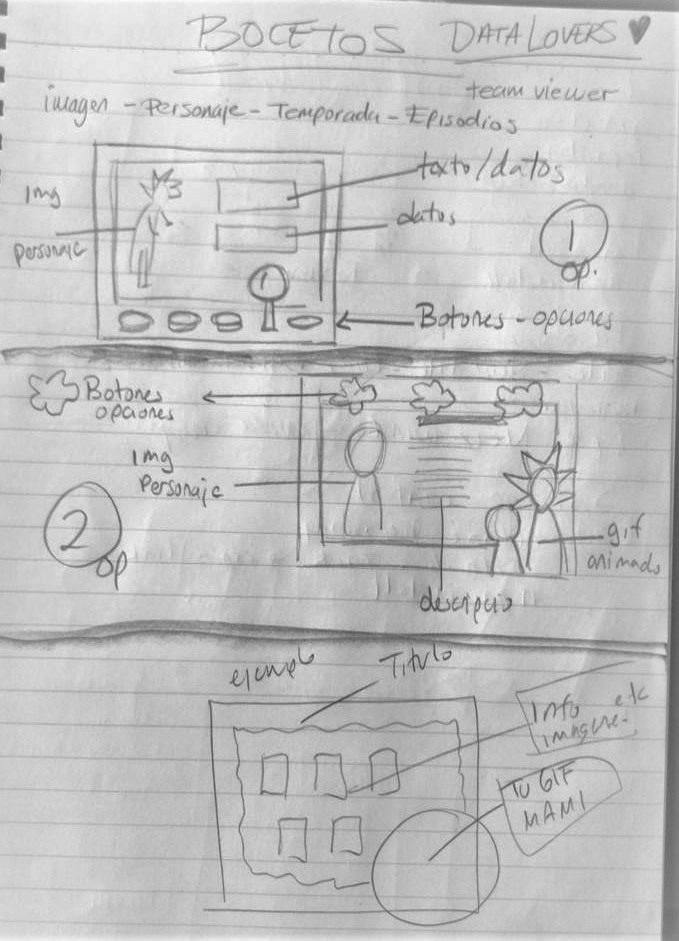 BOCETOS DATA LOVERS ♥
team viewer
imagen - Personaje - Temporada - Episodios
Img
personaje
texto/datos
datos
1
op.
Botones - opciones
Botones
opciones
Img
Personaje
2
op
gif
animado
descripcio
ejemplo
Titulo
Info etc
TU GIF
MAMI